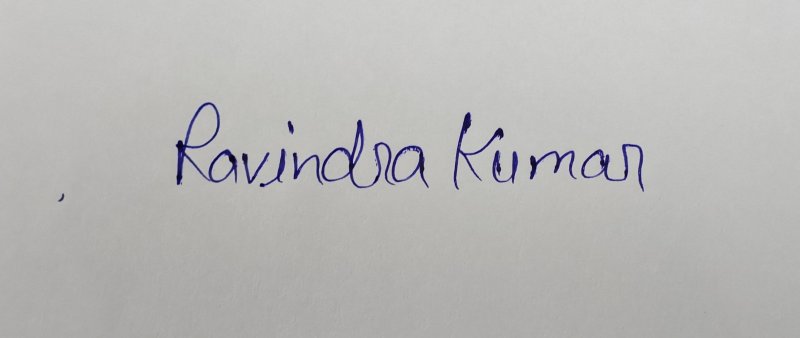 Ravindra Kumar